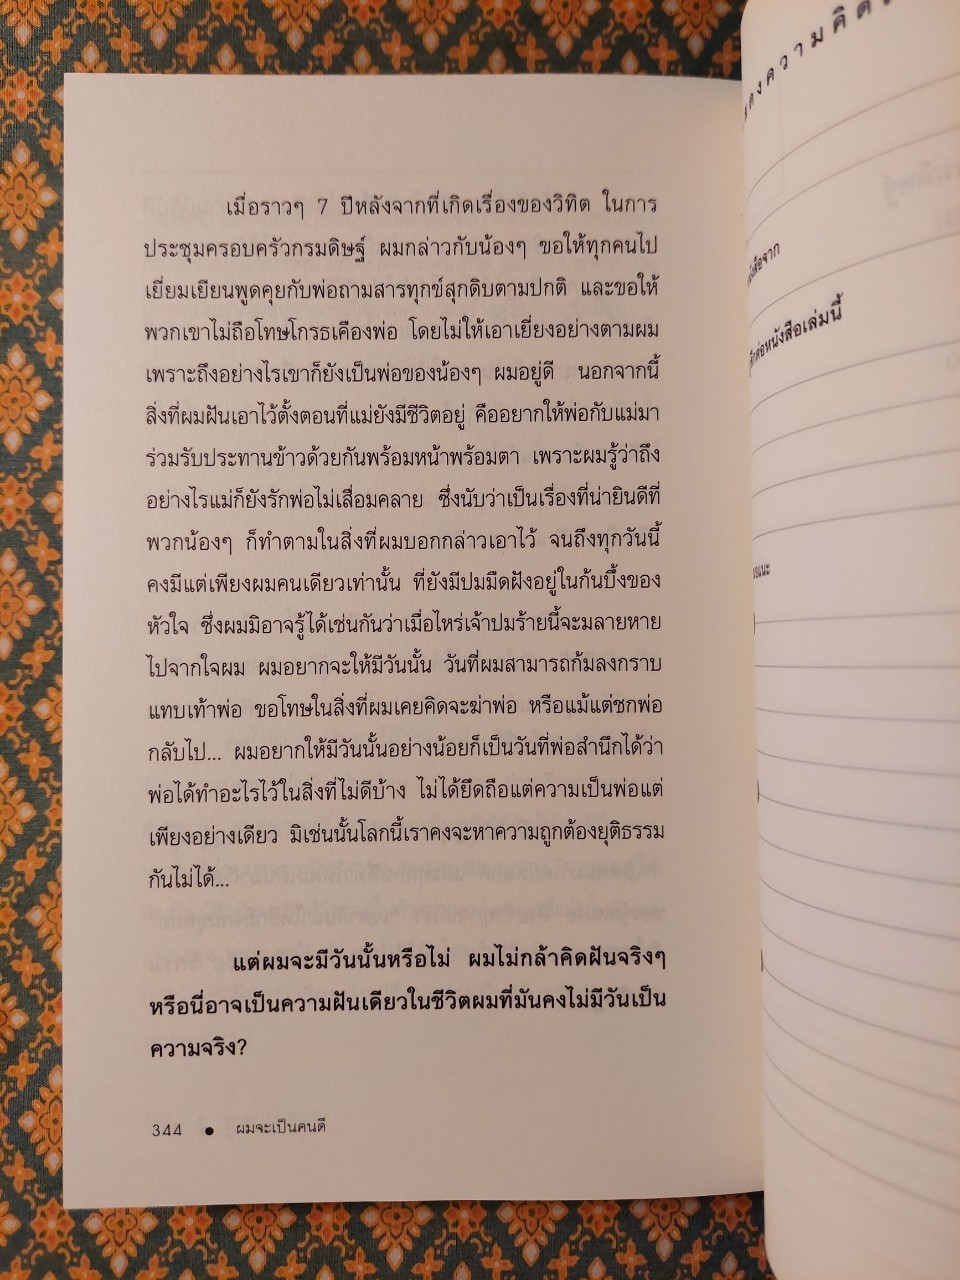 เมื่อราวๆ 7 ปีหลังจากที่เกิดเรื่องของวิทิต ในการ
ประชุมครอบครัวกรมดิษฐ์ ผมกล่าวกับน้องๆ ขอให้ทุกคนไป
เยี่ยมเยียนพูดคุยกับพ่อถามสารทุกข์สุกดิบตามปกติ และขอให้
พวกเขาไม่ถือโทษโกรธเคืองพ่อ โดยไม่ให้เอาเยี่ยงอย่างตามผม
เพราะถึงอย่างไรเขาก็ยังเป็นพ่อของน้องๆ ผมอยู่ดี นอกจากนี้
สิ่งที่ผมฝันเอาไว้ตั้งตอนที่แม่ยังมีชีวิตอยู่ คืออยากให้พ่อกับแม่มา
ร่วมรับประทานข้าวด้วยกันพร้อมหน้าพร้อมตา เพราะผมรู้ว่าถึง
อย่างไรแม่ก็ยังรักพ่อไม่เสื่อมคลาย ซึ่งนับว่าเป็นเรื่องที่น่ายินดีที่
พวกน้องๆ ก็ทำตามในสิ่งที่ผมบอกกล่าวเอาไว้ จนถึงทุกวันนี้
คงมีแต่เพียงผมคนเดียวเท่านั้น ที่ยังมีปมมืดฝังอยู่ในก้นบึ้งของ
หัวใจ ซึ่งผมมิอาจรู้ได้เช่นกันว่าเมื่อไหร่เจ้าปมร้ายนี้จะมลายหาย
ไปจากใจผม ผมอยากจะให้มีวันนั้น วันที่ผมสามารถก้มลงกราบ
แทบเท้าพ่อ ขอโทษในสิ่งที่ผมเคยคิดจะฆ่าพ่อ หรือแม้แต่ชกพ่อ
กลับไป... ผมอยากให้มีวันนั้นอย่างน้อยก็เป็นวันที่พ่อสำนึกได้ว่า
พ่อได้ทำอะไรไว้ในสิ่งที่ไม่ดีบ้าง ไม่ได้ยึดถือแต่ความเป็นพ่อแต่
เพียงอย่างเดียว มิเช่นนั้นโลกนี้เราคงจะหาความถูกต้องยุติธรรม
กันไม่ได้...
แต่ผมจะมีวันนั้นหรือไม่ ผมไม่กล้าคิดฝันจริงๆ
หรือนี่อาจเป็นความฝันเดียวในชีวิตผมที่มันคงไม่มีวันเป็น
ความจริง?
344 ● ผมจะเป็นคนดี
ความคิด
ต่อหนังสือเล่มนี้